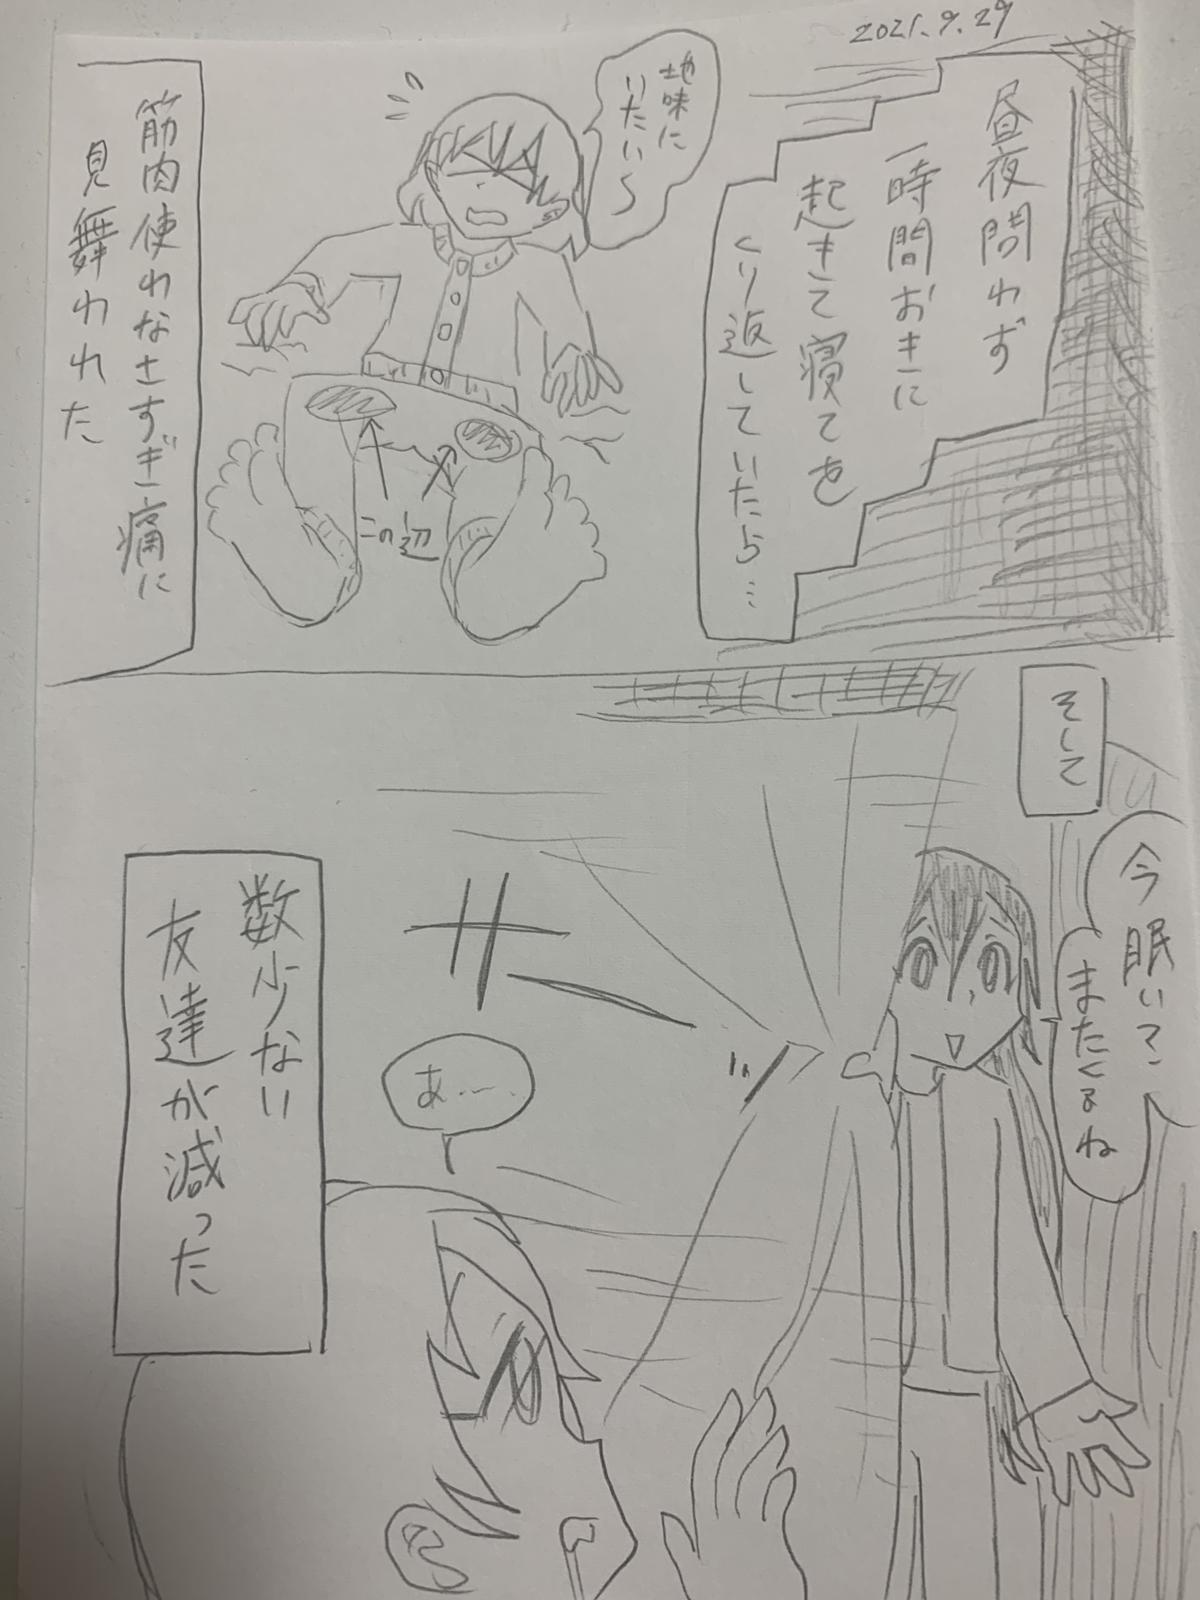 2021.9.29
昼夜問わず
一時間おきに
起きて寝てを
くり返していたら…
地味に
いたい〜
この辺
筋肉使わなさすぎ痛に
見舞われた
そして
今眠いマン
またくるね
サー
あ……
数少ない
友達が減った